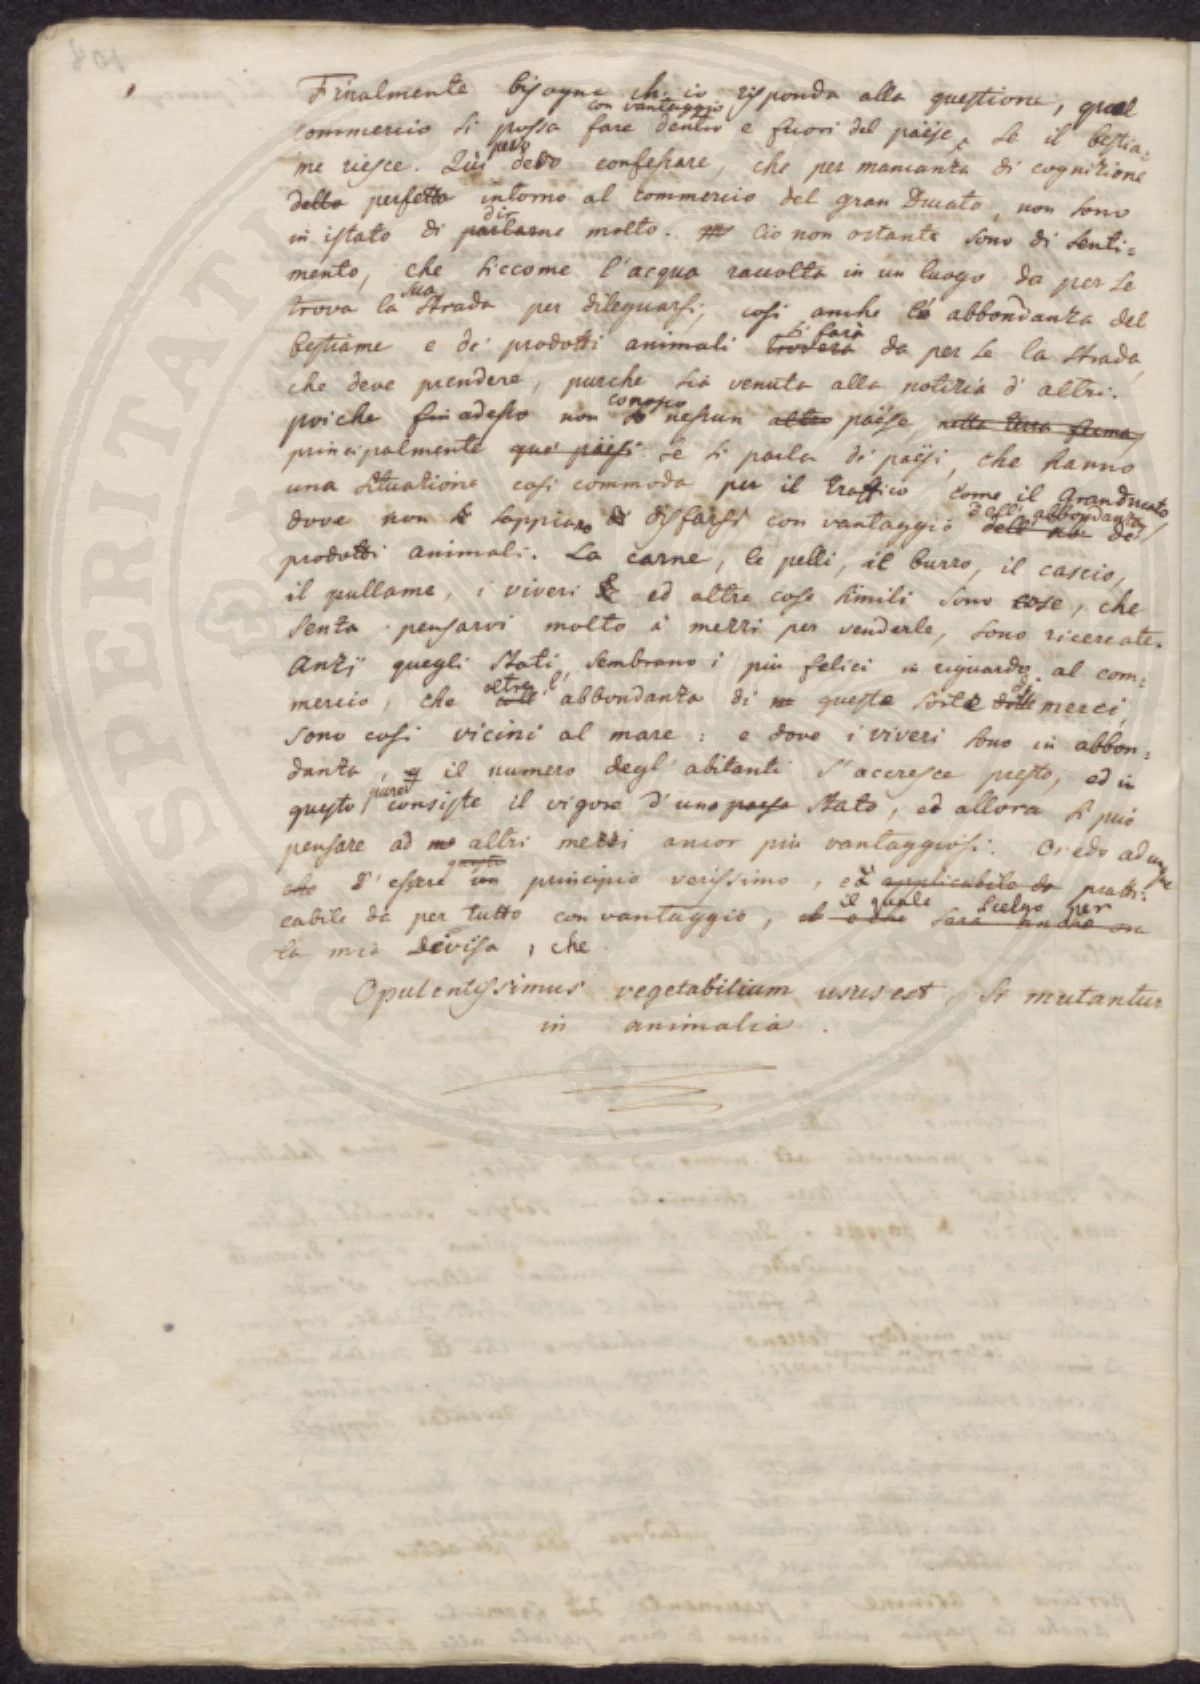 Finalmente bisogna ch' io risponda alla questione, qual
con vantaggio
commercio si possa fare dentro e fuori del paÿse, se il bestia=
però
me riesce. Qui devo confessare, che per mancanza di cognizione
dello perfetto intorno al commercio del gran Ducato, non sono
dir
in istato di parlarne molto. Ciò non ostante sono di senti=
mento, che siccome l'acqua raccolta in un luogo da per se
sua
trova la strada per dileguarsi, cosi anche l' abbondanza del
si farà
bestiame e de' prodotti animali troverà da per se la strada,
che deve prendere, purche sia venuta alla notizia d' altri.
conosco
poiche fin adesso non so nessun altro paÿse nella terra ferma,
principalmente que' paÿsi se si parla di paÿsi, che hanno
una situazione cosi commoda per il traffico come il Granducato,
dell' abbondanza
dove non si sappiano disfarsi con vantaggio de'
prodotti animali. La carne, le pelli, il burro, il cascio,
il pullame, i viveri & ed altre cose simili sono cose, che
senza pensarvi molto à mezzi per venderle, sono ricercate.
Anzi quegli Stati, sembrano i piu felici in riguardo al com=
oltre l'
mercio, che coll abbondanza di queste sorte di merci,
sono cosi vicini al mare: e dove i viveri sono in abbon=
danza, il numero degl' abitanti s'accresce presto, ed in
pure
questo consiste il vigore d'uno paese Stato, ed allora si può
pensare ad altri mezzi ancor piu vantaggiosi. Credo adunque
questo
che d' essere un principio verissimo, ed applicabile da prati=
il quale scelgo per
cabile da per tutto con vantaggio, e che sarà anche
la mia Devisa, che
Opulentissimus vegetabilium usus est, si mutantur
in animalia.